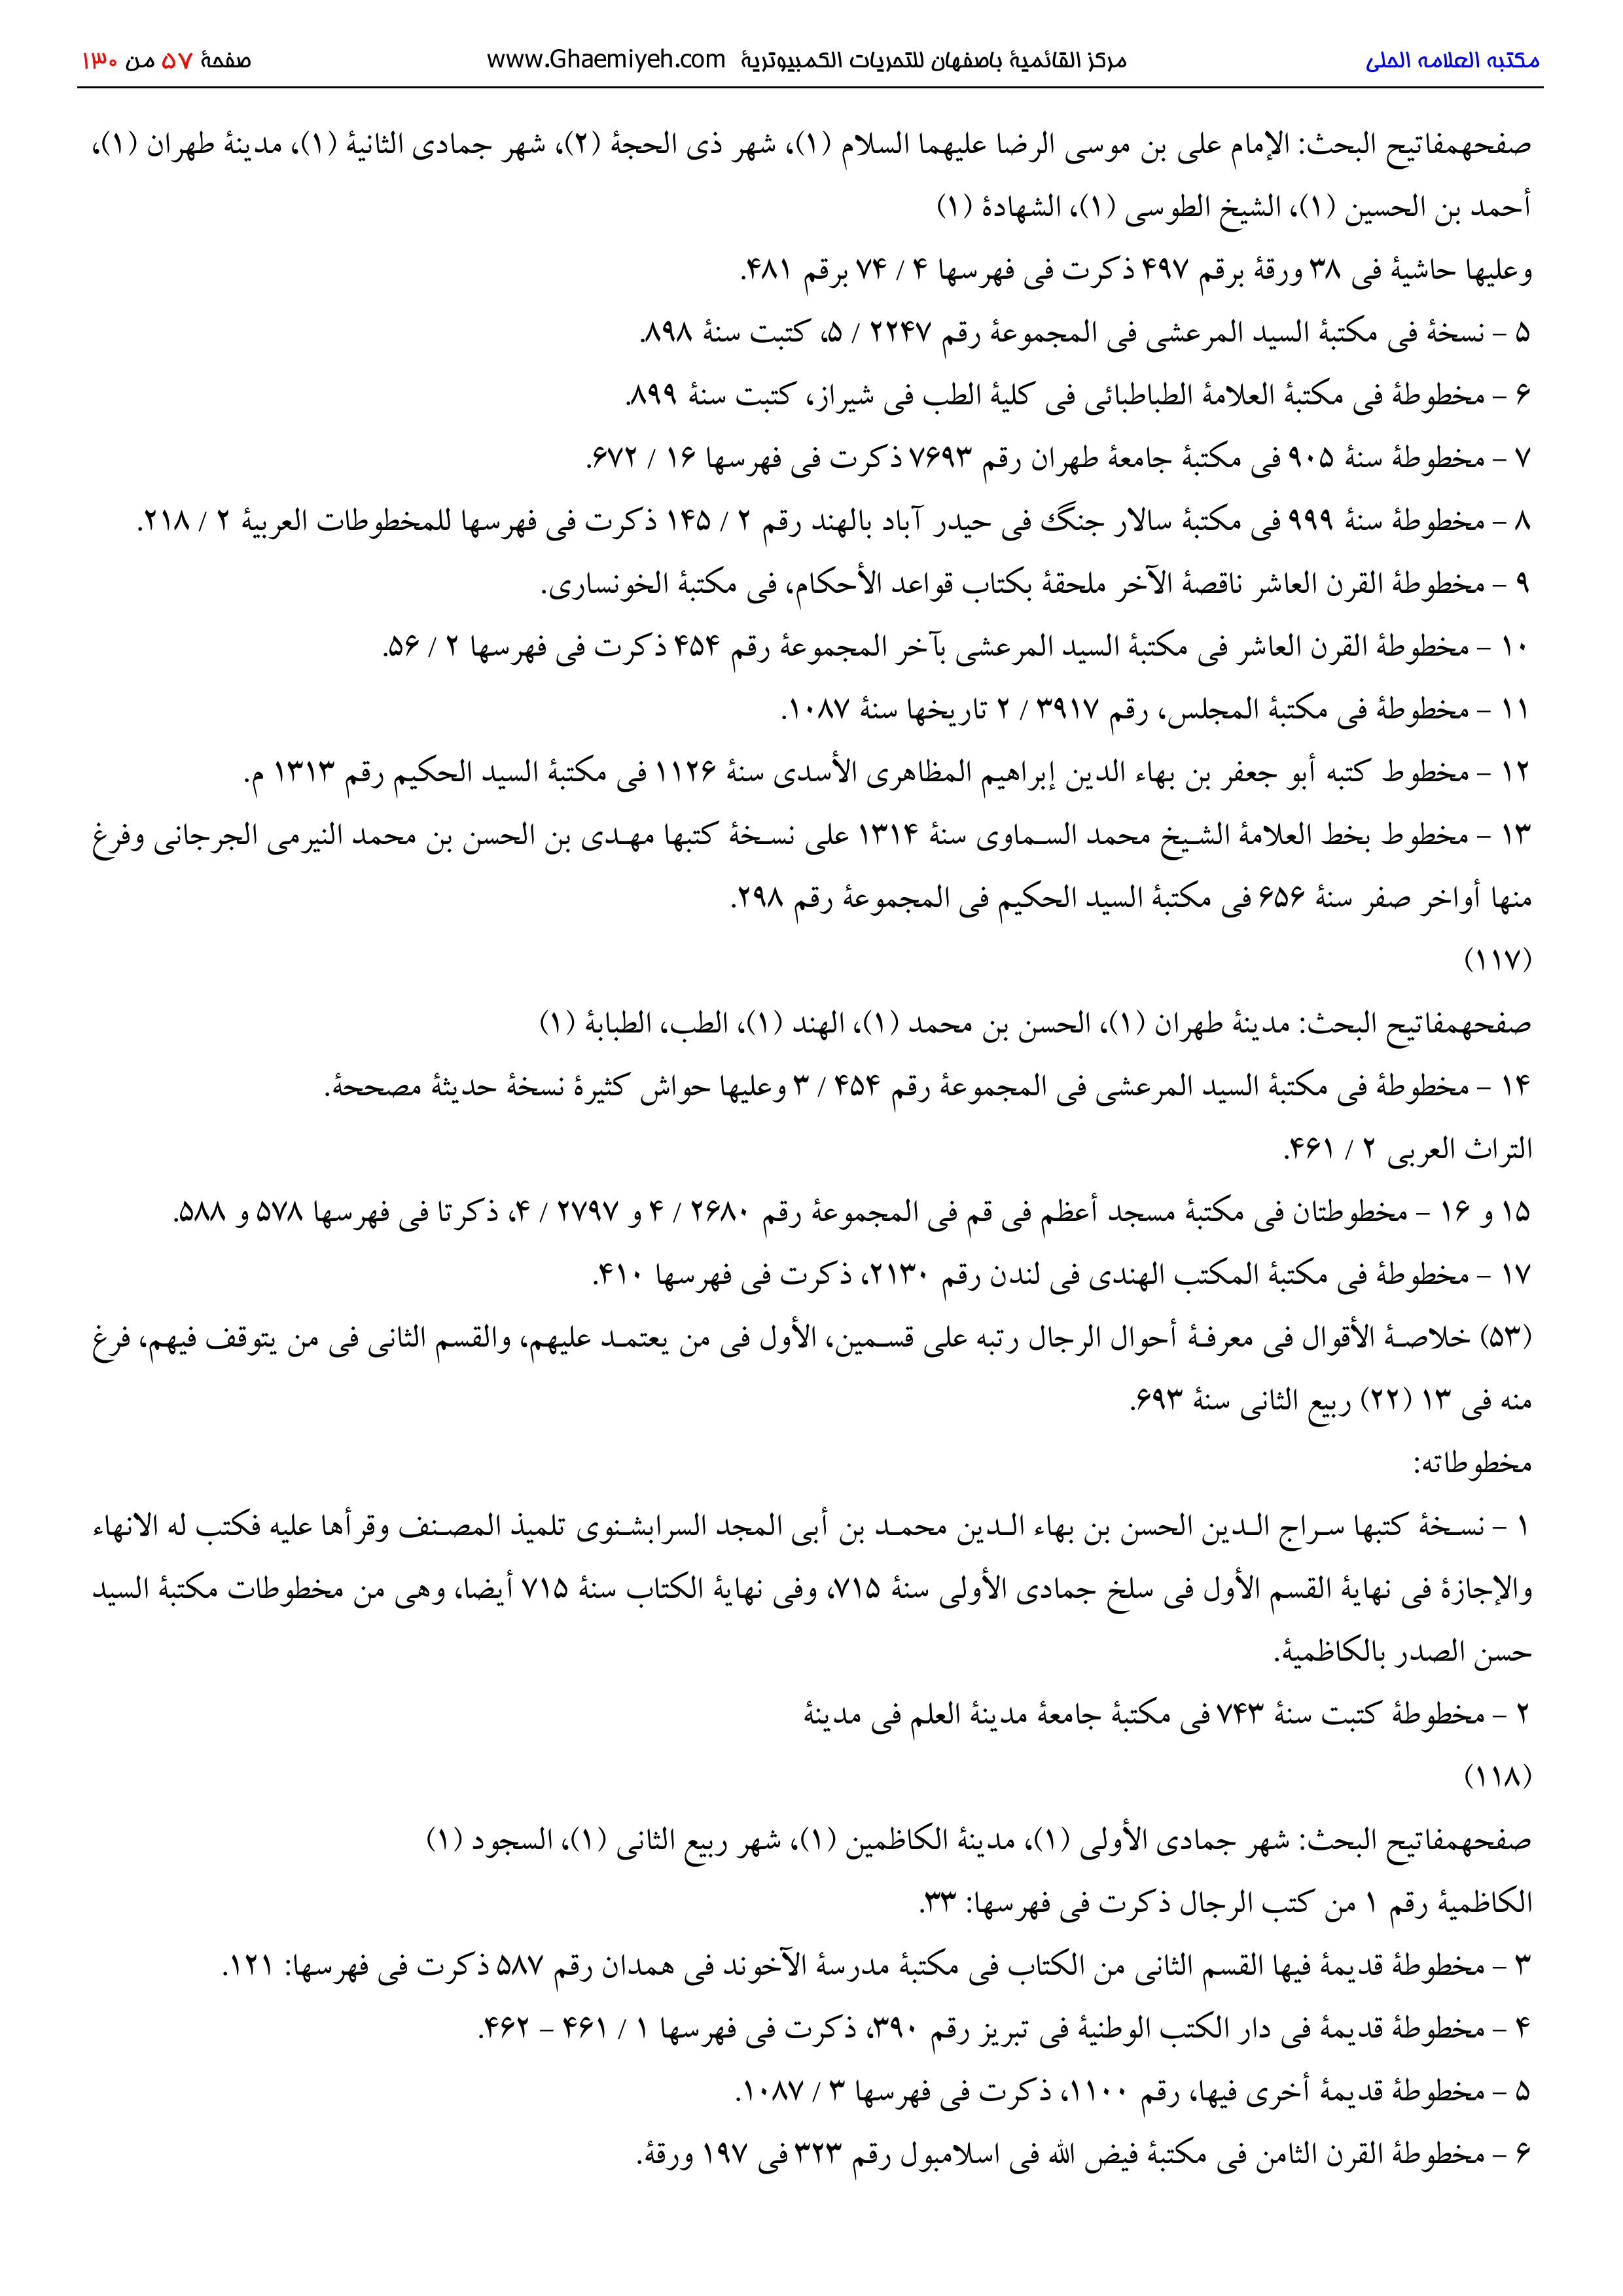 مكتبه العلامه الحلی مركز القائمیهٔ باصفهان للتحریات الكمبیوتریهٔ www.Ghaemiyeh.com صفحهٔ ۵۷ من ۱۳۰
صفحهمفاتیح البحث: الإمام علی بن موسی الرضا علیهما السلام (۱)، شهر ذی الحجهٔ (۲)، شهر جمادی الثانیهٔ (۱)، مدینهٔ طهران (۱)،
أحمد بن الحسین (۱)، الشیخ الطوسی (۱)، الشهادهٔ (۱)
وعلیها حاشیهٔ فی ۳۸ ورقهٔ برقم ۴۹۷ ذكرت فی فهرسها ۴ / ۷۴ برقم ۴۸۱.
۵ - نسخهٔ فی مكتبهٔ السید المرعشی فی المجموعهٔ رقم ۲۲۴۷ / ۵، كتبت سنهٔ ۸۹۸.
۶ - مخطوطهٔ فی مكتبهٔ العلامهٔ الطباطبائی فی كلیهٔ الطب فی شیراز، كتبت سنهٔ ۸۹۹.
۷ - مخطوطهٔ سنهٔ ۹۰۵ فی مكتبهٔ جامعهٔ طهران رقم ۷۶۹۳ ذكرت فی فهرسها ۱۶ / ۶۷۲.
۸ - مخطوطهٔ سنهٔ ۹۹۹ فی مكتبهٔ سالار جنگ فی حیدر آباد بالهند رقم ۲ / ۱۴۵ ذكرت فی فهرسها للمخطوطات العربیهٔ ۲ / ۲۱۸.
۹ - مخطوطهٔ القرن العاشر ناقصهٔ الآخر ملحقهٔ بكتاب قواعد الأحكام، فی مكتبهٔ الخونساری.
۱۰ - مخطوطهٔ القرن العاشر فی مكتبهٔ السید المرعشی بآخر المجموعهٔ رقم ۴۵۴ ذكرت فی فهرسها ۲ / ۵۶.
۱۱ - مخطوطهٔ فی مكتبهٔ المجلس، رقم ۳۹۱۷ / ۲ تاریخها سنهٔ ۱۰۸۷.
۱۲ - مخطوط كتبه أبو جعفر بن بهاء الدین إبراهیم المظاهری الأسدی سنهٔ ۱۱۲۶ فی مكتبهٔ السید الحكیم رقم ۱۳۱۳ م.
۱۳ - مخطوط بخط العلامهٔ الشیخ محمد السماوی سنهٔ ۱۳۱۴ علی نسخهٔ كتبها مهدی بن الحسن بن محمد النیرمی الجرجانی وفرغ
منها أواخر صفر سنهٔ ۶۵۶ فی مكتبهٔ السید الحكیم فی المجموعهٔ رقم ۲۹۸.
(۱۱۷)
صفحهمفاتیح البحث: مدینهٔ طهران (۱)، الحسن بن محمد (۱)، الهند (۱)، الطب، الطبابهٔ (۱)
۱۴ - مخطوطهٔ فی مكتبهٔ السید المرعشی فی المجموعهٔ رقم ۴۵۴ / ۳ وعلیها حواش كثیرهٔ نسخهٔ حدیثهٔ مصححهٔ.
التراث العربی ۲ / ۴۶۱.
۱۵ و ۱۶ - مخطوطتان فی مكتبهٔ مسجد أعظم فی قم فی المجموعهٔ رقم ۲۶۸۰ / ۴ و ۲۷۹۷ / ۴، ذكرتا فی فهرسها ۵۷۸ و ۵۸۸.
۱۷ - مخطوطهٔ فی مكتبهٔ المكتب الهندی فی لندن رقم ۲۱۳۰، ذكرت فی فهرسها ۴۱۰.
(۵۳) خلاصهٔ الأقوال فی معرفهٔ أحوال الرجال رتبه علی قسمین، الأول فی من یعتمد علیهم، والقسم الثانی فی من یتوقف فیهم، فرغ
منه فی ۱۳ (۲۲) ربیع الثانی سنهٔ ۶۹۳.
مخطوطاته:
۱ - نسخهٔ كتبها سراج الدین الحسن بن بهاء الدین محمد بن أبی المجد السرابشنوی تلمیذ المصنف وقرأها علیه فكتب له الانهاء
والإجازهٔ فی نهایهٔ القسم الأول فی سلخ جمادی الأولی سنهٔ ۷۱۵، وفی نهایهٔ الكتاب سنهٔ ۷۱۵ أیضا، وهی من مخطوطات مكتبهٔ السید
حسن الصدر بالكاظمیهٔ.
۲ - مخطوطهٔ كتبت سنهٔ ۷۴۳ فی مكتبهٔ جامعهٔ مدینهٔ العلم فی مدینهٔ
(۱۱۸)
صفحهمفاتیح البحث: شهر جمادی الأولی (۱)، مدینهٔ الكاظمین (۱)، شهر ربیع الثانی (۱)، السجود (۱)
الكاظمیهٔ رقم ۱ من كتب الرجال ذكرت فی فهرسها: ۳۳.
۳ - مخطوطهٔ قدیمهٔ فیها القسم الثانی من الكتاب فی مكتبهٔ مدرسهٔ الآخوند فی همدان رقم ۵۸۷ ذكرت فی فهرسها: ۱۲۱.
۴ - مخطوطهٔ قدیمهٔ فی دار الكتب الوطنیهٔ فی تبریز رقم ۳۹۰، ذكرت فی فهرسها ۱ / ۴۶۱ - ۴۶۲.
۵ - مخطوطهٔ قدیمهٔ أخری فیها، رقم ۱۱۰۰، ذكرت فی فهرسها ۳ / ۱۰۸۷.
۶ - مخطوطهٔ القرن الثامن فی مكتبهٔ فیض الله فی اسلامبول رقم ۳۲۳ فی ۱۹۷ ورقهٔ.